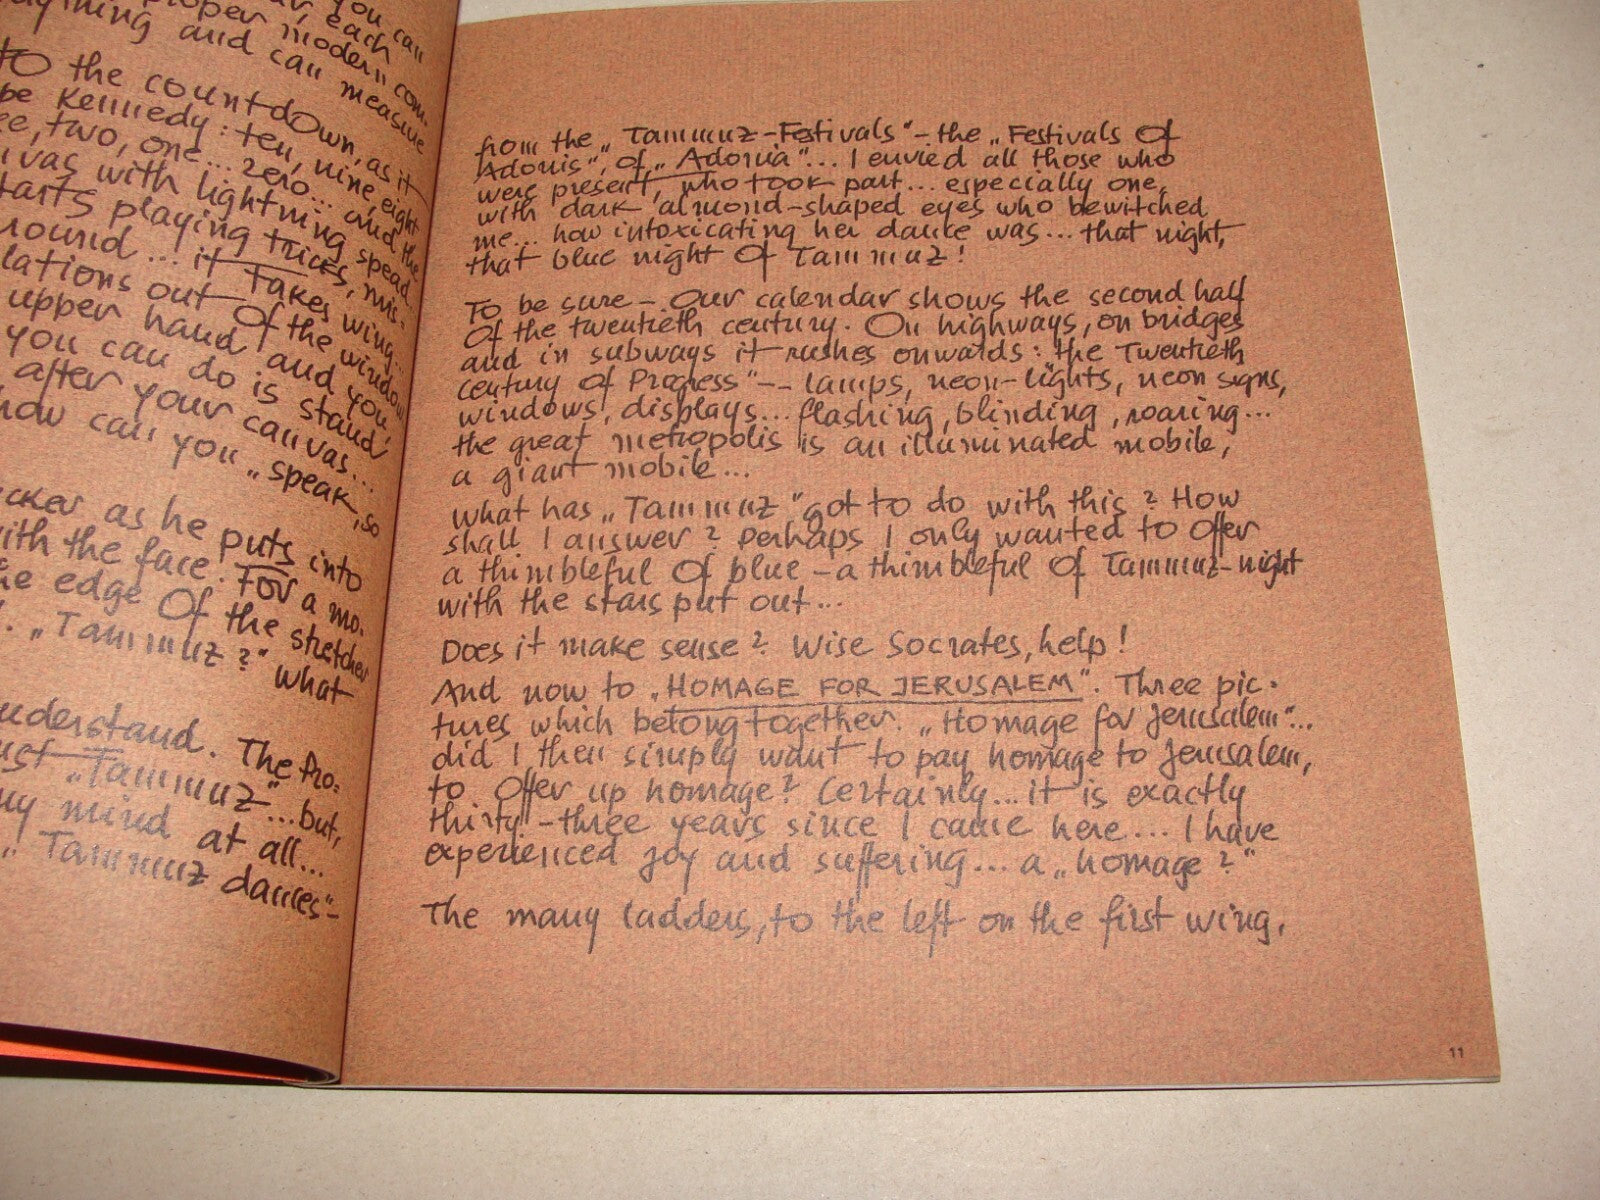 you can
each
proper modern com-
and can measure
to the countdown, as it
Kennedy: ten, nine, eight
two, one... zero... and the
was with lightning spead.
starts playing tricks, mis-
it takes wing...
out of the window
upper hand and you,
you can do is stand
after your canvas...
how can you „speak, so
as he puts into
with the face. For a mo-
edge of the stretcher
„Tammuz?" what
understand. The fro-
„Tammuz"... but,
my mind at all...
„Tammuz dances"-
from the „Tammuz-Festivals"- the „Festivals of
Adonis", of „Adonia"... I envied all those who
were present, who took part... especially one,
with dark almond-shaped eyes who bewitched
me... how intoxicating her dance was... that night,
that blue night of Tammuz!
To be sure - our calendar shows the second half
of the twentieth century. On highways, on bridges
and in subways it rushes onwards: the Twentieth
century of Progress"-- lamps, neon-lights, neon signs,
windows, displays... flashing, blinding, roaring...
the great metropolis is an illuminated mobile,
a giant mobile...
What has „Tammuz" got to do with this? How
shall I answer? Perhaps I only wanted to offer
a thimbleful of blue - a thimbleful of Tammuz-night
with the stars put out...
Does it make sense? Wise Socrates, help!
And now to „HOMAGE FOR JERUSALEM". Three pic-
tures which belong together. „Homage for Jerusalem"...
did I then simply want to pay homage to Jerusalem,
to offer up homage? Certainly... it is exactly
thirty-three years since I came here... I have
experienced joy and suffering... a „homage?"
The many ladders, to the left on the first wing,
11